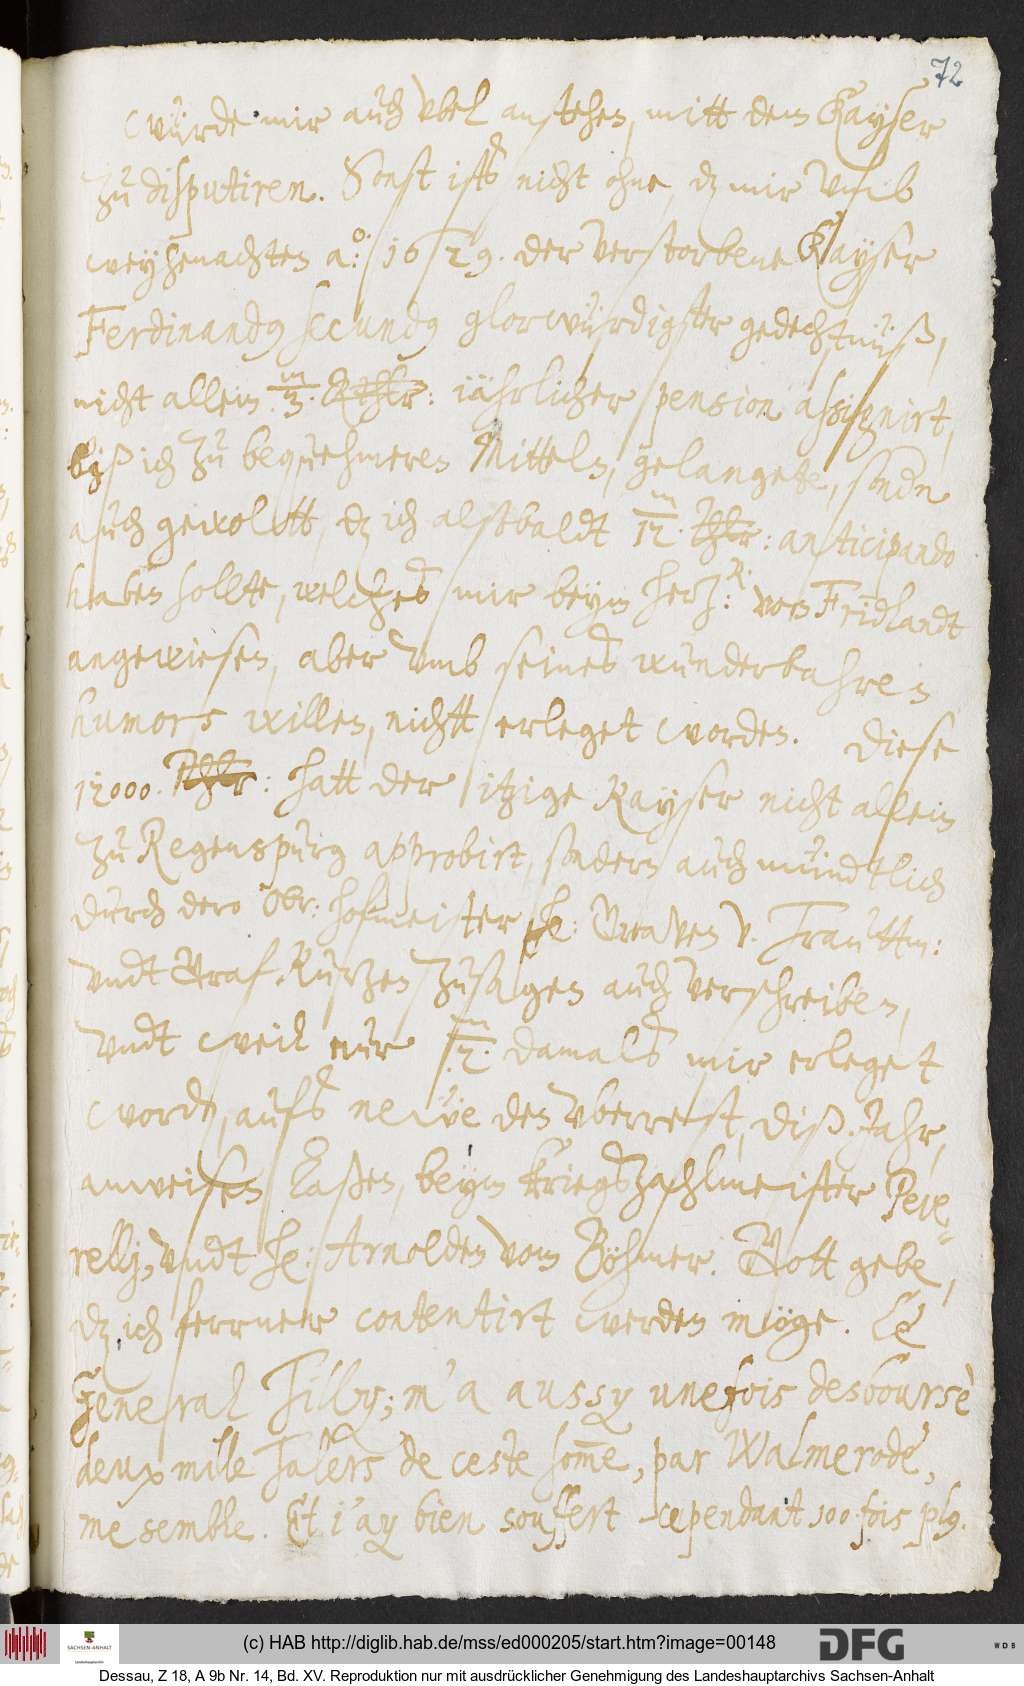 72
würde mir auch vbel anstehen, mitt dem Kayser
zu disputiren. Sonst ists nicht ohne, dz mir vmb
weyhenachten ao: 1629. der verstorbene Kayser
Ferdinandus secundus glorwürdigster gedechtnüß,
nicht allein m/3. Rthlr: iährlicher pension assignirt,
biß ich zu bequehmeren Mitteln, gelangete, sondn
auch gewoltt, dz ich alsobaldt m/12. Thlr: anticipando
haben sollte, welches mir beym Herz: von Fridlandt
angewiesen, aber vmb seines wunderbahren
humors willen, nichtt erleget worden. Diese
12000. Rthlr: hatt der itzige Kayser nicht allein
zu Regenspurg approbirt, sondern auch mündtlich
durch dero Obr: hofmeister he: Graven v. Trauttm:
vndt Graf. Kurtzen zusagen auch verschreiben,
vndt weil nur m/2. damals mir erleget
worden, aufs neẅe den vberrest, diß. Jahr,
anweisen laßen, beym kriegszahlmeister Peve-
relly, vndt he: Arnolden vom Böhmer. Gott gebe,
dz ich ferrner contentirt werden möge. Le
General Tilly; m'a aussy unefois desboursè
deux mille Talers de ceste som̄e, par Walmerode,
me semble. Et i'ay bien souffert cependant 100 fois plus.
(c) HAB http://diglib.hab.de/mss/ed000205/start.htm?image=00148
SACHSEN-ANHALT
Landeshauptarchiv
DFG
WDB
Dessau, Z 18, A 9b Nr. 14, Bd. XV. Reproduktion nur mit ausdrücklicher Genehmigung des Landeshauptarchivs Sachsen-Anhalt